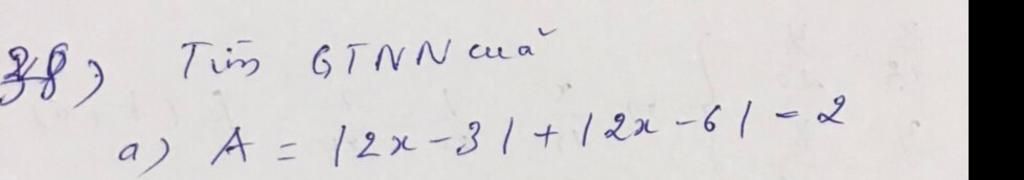 38) Tìm GTNN của
a) A = |2x-3| + |2x-6| - 2